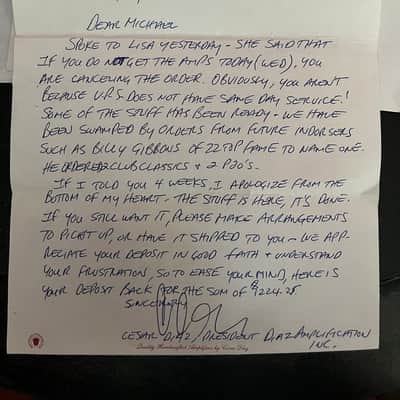 DEAR MICHAEL
SPOKE TO LISA YESTERDAY - SHE SAID THAT
IF YOU DO NOT GET THE AMPS TODAY (WED), YOU
ARE CANCELING THE ORDER. OBVIOUSLY, YOU AREN'T
BECAUSE U.P.S. DOES NOT HAVE SAME DAY SERVICE!
SOME OF THE STUFF HAS BEEN READY - WE HAVE
BEEN SWAMPED BY ORDERS FROM FUTURE INDORSERS
SUCH AS BILLY GIBBONS OF ZZ TOP FAME TO NAME ONE.
HE ORDERED 2 CLUB CLASSICS + 2 P20'S.
IF I TOLD YOU 4 WEEKS, I APOLOGIZE FROM THE
BOTTOM OF MY HEART - THE STUFF IS HERE, IT'S DONE.
IF YOU STILL WANT IT, PLEASE MAKE ARRANGEMENTS
TO PICK IT UP, OR HAVE IT SHIPPED TO YOU - WE APP-
RECIATE YOUR DEPOSIT IN GOOD FAITH + UNDERSTAND
YOUR FRUSTRATION, SO TO EASE YOUR MIND, HERE IS
YOUR DEPOSIT BACK FOR THE SUM OF $1224.25
SINCERELY
CESAR DIAZ / PRESIDENT DIAZ AMPLIFICATION
INC.
Quality Handcrafted Amplifiers by Cesar Diaz